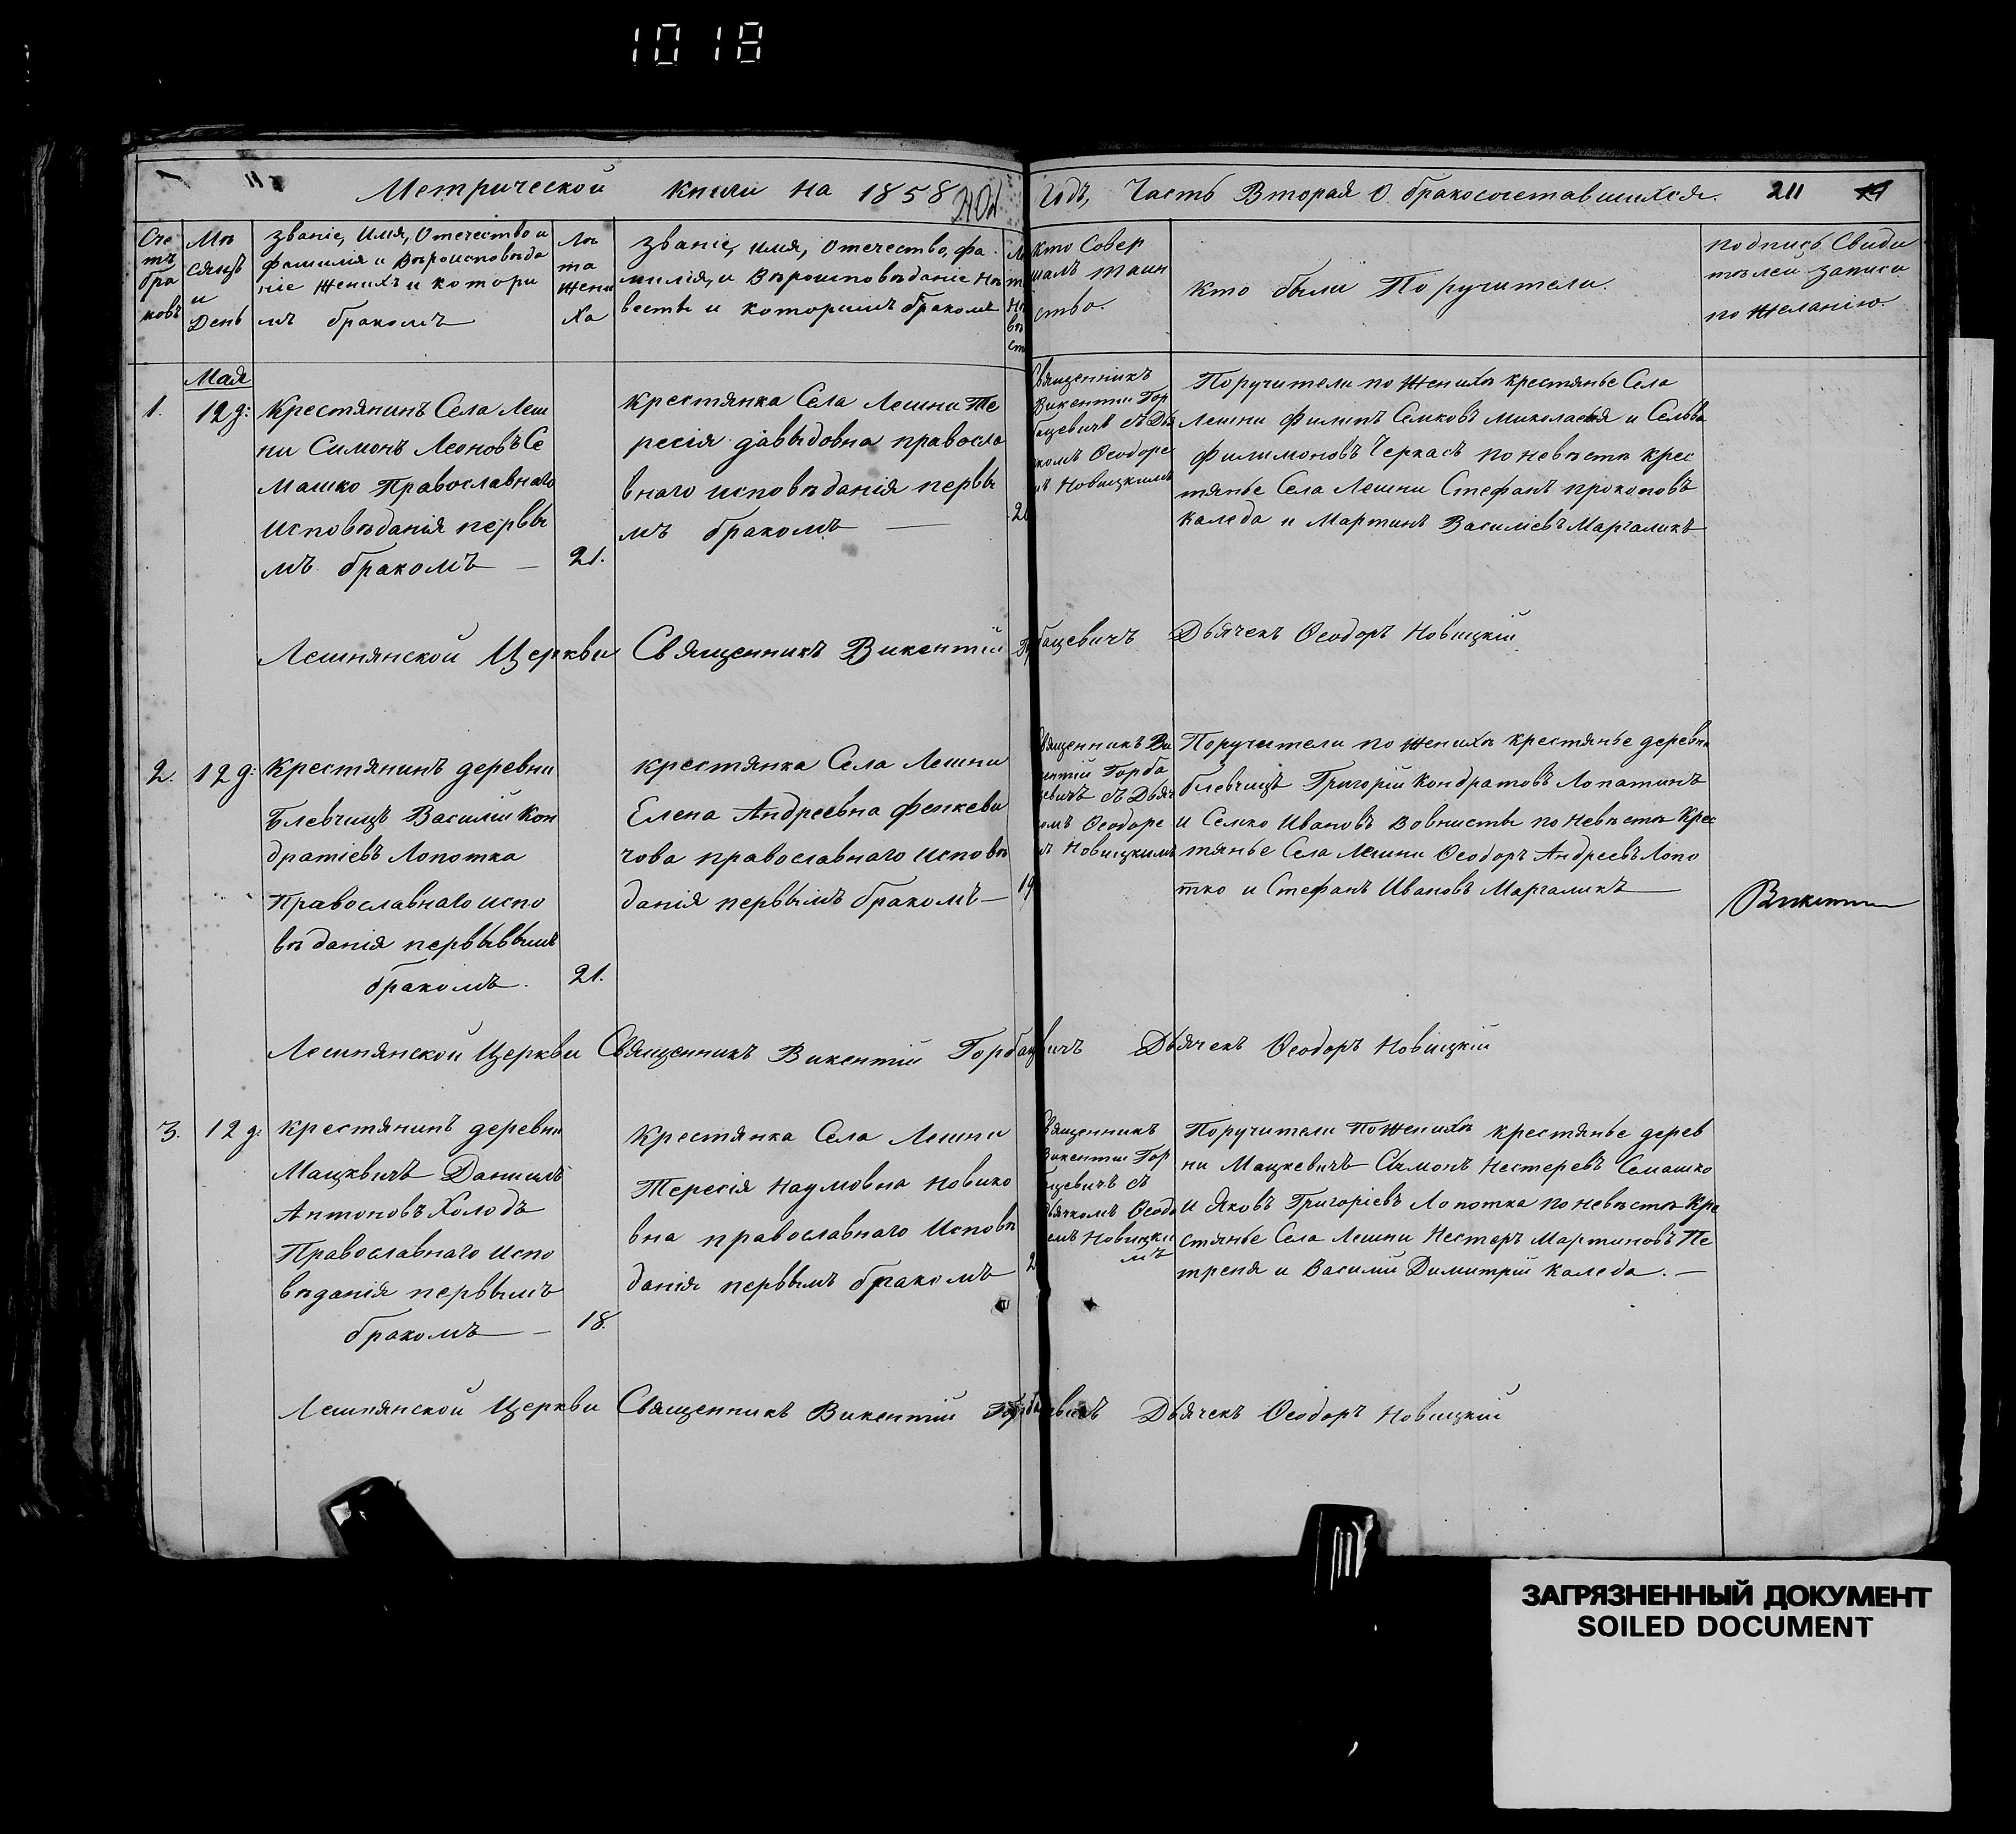 1018
Метрической книги на 1858
Годъ, Часть Вторая О бракосочетавшихся. 211
Сче
тъ
бра
ковъ
Мѣ
сяцъ
и
День
Званіе, Имя, Отечество и
фамилія и Вѣроисповѣда
ніе Жениха и котори
мъ бракомъ
Лѣ
та
Жени
Ха
Званіе, имя, Отечество, фа
милія, и Вѣроисповѣданіе Не
весты и которимъ бракомъ
Кто Совер
шалъ таин
ство.
Кто были Поручители.
подпись Свиди
тѣлей записи
по Желанію.
Мая
1.
12 д:
Крестянинъ Села Леш
ни Симонъ Леоновъ Се
машко Православнаго
Исповѣданія первы
мъ бракомъ —
21.
Крестянка Села Лешни Те
ресія давыдовна правосла
внаго исповѣданія первы
мъ бракомъ —
Священникъ
Викентій Гор
бацевичъ съ Дья
комъ Ѳеодоро
мъ Новицкимъ
Поручители по Женихѣ крестянье Села
Лешни Филипъ Семковъ и
Филимоновъ Черкасъ по невѣсте крес
тянье Села Лешни Стефанъ прокоповъ
Каледа и Мартинъ Василіевъ Маргаликъ
Лешнянской Церкви Священникъ Викентій Горбацевичъ Дьячекъ Ѳеодоръ Новицкій
2.
12 д:
Крестянинъ деревни
Блевчицъ Василій Кон
дратіевъ Лопотка
Православнаго испо
вѣданія первывымъ
бракомъ.
21.
крестянка Села Лешни
Елена Андреевна Фенкеви
чова православнаго исповѣ
данія первымъ бракомъ —
19
Священникъ Ви
кентій Горба
цевичъ съ Дьяч
комъ Ѳеодоро
мъ Новицкимъ
Поручители по Женихѣ крестянье деревни
блевчицъ Григорій Кондратовъ Лопатинъ
и Семко Ивановъ по невѣсте Крес
тянье Села Лешни Ѳеодоръ Андреевъ Лопо
тко и Стефанъ Ивановъ Маргаликъ —
Лешнянской Церкви Священникъ Викентій Горбацевичъ Дьячекъ Ѳеодоръ Новицкій
3.
12 д:
крестянинъ деревни
Мацквичъ Данилъ
Антоновъ Холодъ
Православнаго испо
вѣданія первымъ
бракомъ —
18.
Крестянка Села Лешни
Тересія Наумовна Новико
вна православнаго Исповѣ
данія первымъ бракомъ
Священникъ
Викентій Гор
бацевичъ съ
Дьячкомъ Ѳеодо
ромъ Новицки
мъ
Поручители По Женихѣ крестянье дерев
ни Мацкевичъ Сымонъ Нестеревъ Семашко
и Яковъ Григоріевъ Лопотка по невѣсте Кре
стянье Села Лешни Нестеръ Мартиновъ Пе
треня и Василій Димитрій Каледа. —
Лешнянской Церкви Священникъ Викентій Горбацевичъ Дьячекъ Ѳеодоръ Новицкій
ЗАГРЯЗНЕННЫЙ ДОКУМЕНТ
SOILED DOCUMENT